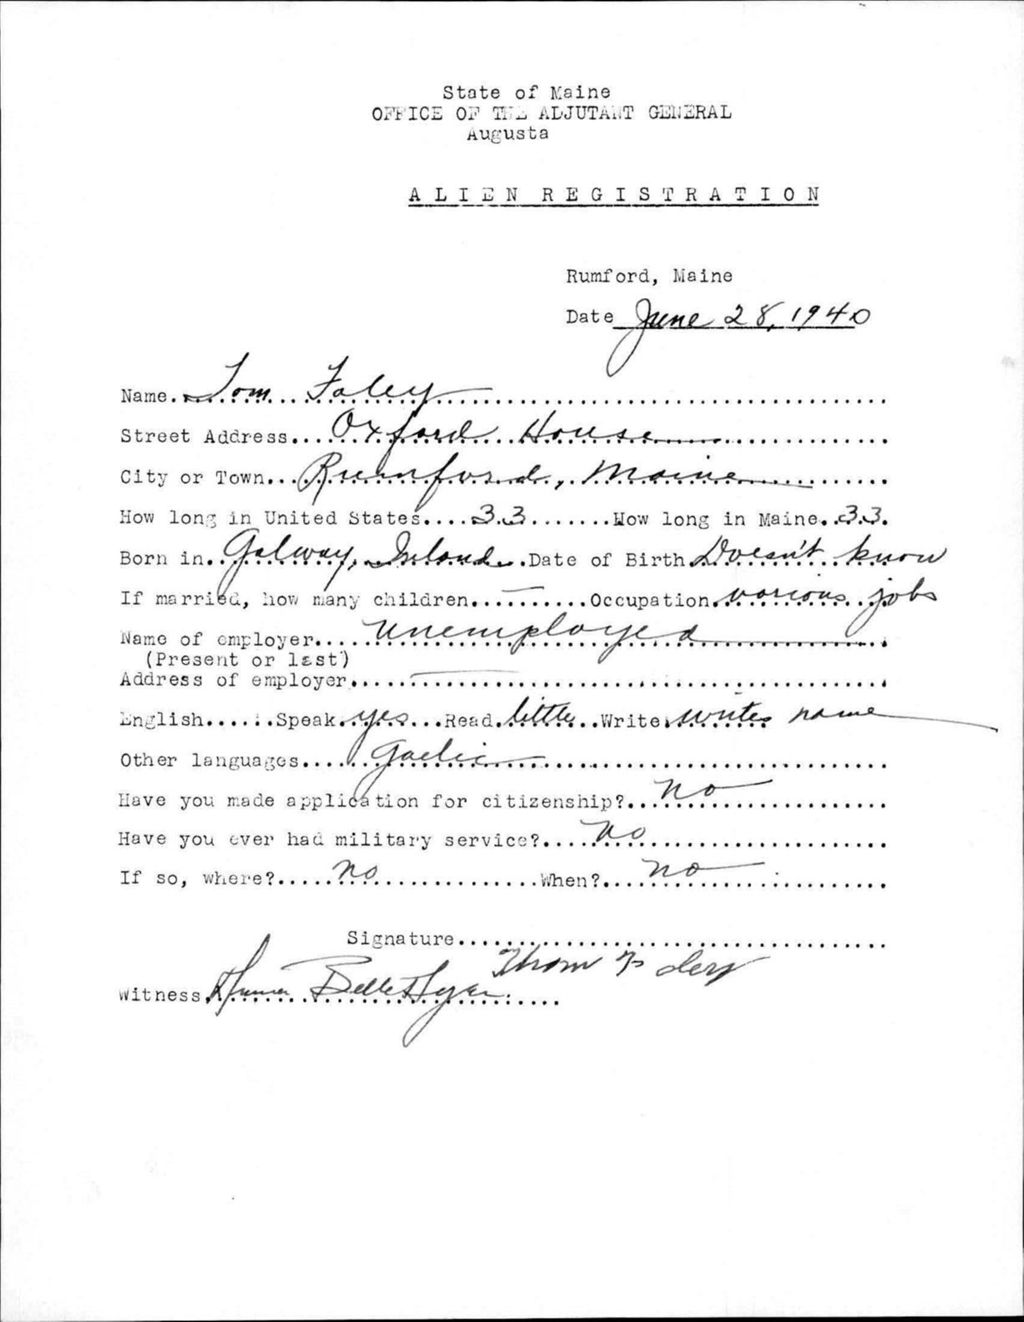 State of Maine
OFFICE OF THE ADJUTANT GENERAL
Augusta
ALIEN REGISTRATION
Rumford, Maine
Date June 28, 1940
Name Tom Foley
Street Address Oxford House
City or Town Rumford, Maine
How long in United States 33 How long in Maine 33
Born in Galway, Ireland Date of Birth Doesn't know
If married, how many children — Occupation various jobs
Name of employer unemployed
(Present or last)
Address of employer —
English Speak yes Read little Write writes name
Other languages Gaelic
Have you made application for citizenship? no
Have you ever had military service? no
If so, where? no When? no
Signature
Thom Foley
Witness Belle Hyer